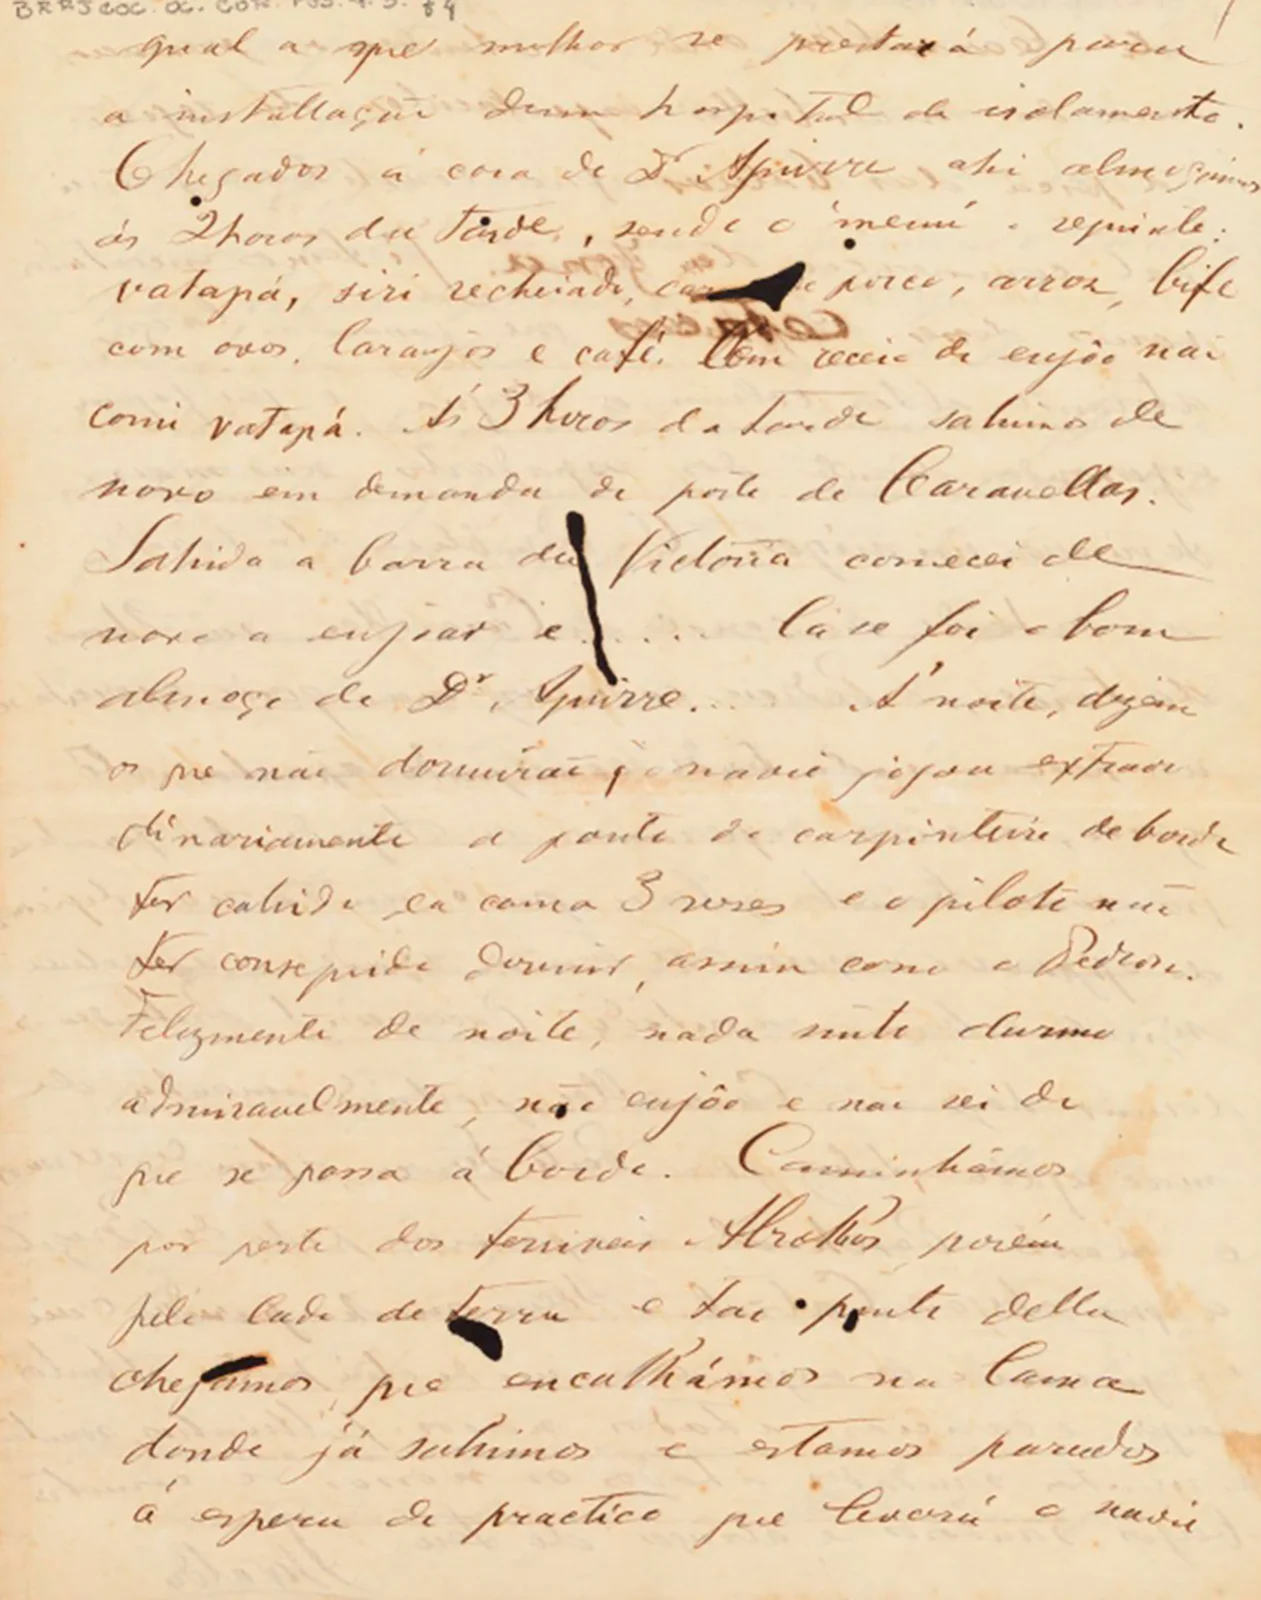 BR RJ COC. OC. COR. PES. 4. 3. 84
qual a que melhor se prestará para
a installação dum hospital de isolamento.
Chegados á casa do Dr Aguirre ahi almoçámos
ás 2 horas da tarde, sendo o menú o seguinte:
vatapá, siri recheiado, de porco, arroz, bife
com ovos, laranjas e café. Com receio de enjôo não
comi vatapá. Ás 3 horas da tarde sahimos de
novo em demanda do porto de Caravellas.
Sahida a barra da Victoria comecei de
novo a enjoar e..... lá se foi o bom
almoço do Dr. Aguirre.... Á noite, dizem
os que não dormirão, o navio jogou extraor
dinariamente a ponto do carpinteiro de bordo
ter cahido da cama 3 vezes e o piloto não
ter conseguido dormir, assim como o Pedroso.
Felizmente de noite, nada sinto durmo
admiravelmente, não enjôo e não sei do
que se passa á bordo. Caminhámos
por perto dos terriveis Abrolhos, porém
pelo lado de terra e tão junto della
chegámos, que encalhámos na lama
donde já sahimos e estamos parados
á espera do practico que levará o navio